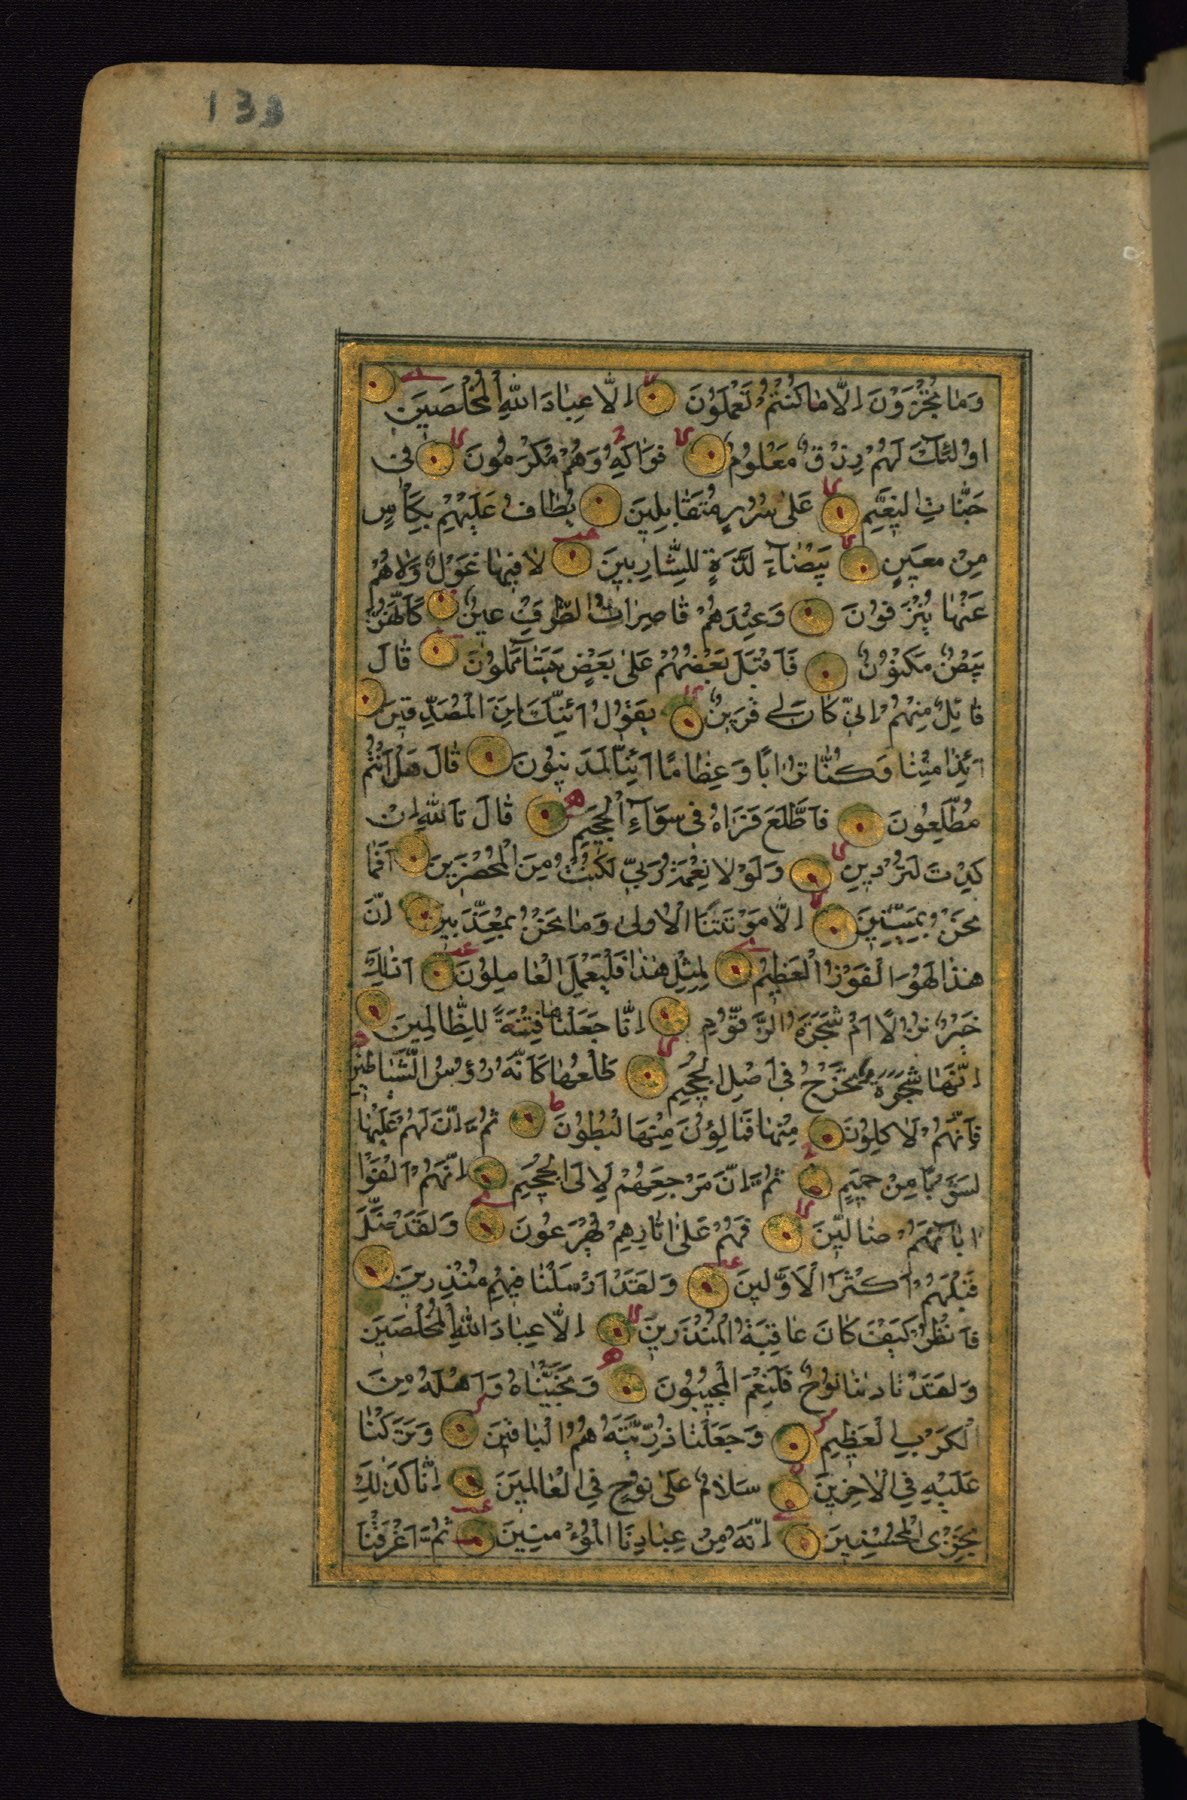 133
وَمَا تُجْزَوْنَ اِلَّا مَا كُنْتُمْ تَعْمَلُونَ اِلَّا عِبَادَ اللّٰهِ الْمُخْلَصِينَ
اُولٰئِكَ لَهُمْ رِزْقٌ مَعْلُومٌ فَوَاكِهُ وَهُمْ مُكْرَمُونَ فِى
جَنَّاتِ النَّعِيمِ عَلٰى سُرُرٍ مُتَقَابِلِينَ يُطَافُ عَلَيْهِمْ بِكَاْسٍ
مِنْ مَعِينٍ بَيْضَآءَ لَذَّةٍ لِلشَّارِبِينَ لَا فِيهَا غَوْلٌ وَلَا هُمْ
عَنْهَا يُنْزَفُونَ وَعِنْدَهُمْ قَاصِرَاتُ الطَّرْفِ عِينٌ كَاَنَّهُنَّ
بَيْضٌ مَكْنُونٌ فَاَقْبَلَ بَعْضُهُمْ عَلٰى بَعْضٍ يَتَسَآءَلُونَ قَالَ
قَآئِلٌ مِنْهُمْ اِنِّى كَانَ لِى قَرِينٌ يَقُولُ اَئِنَّكَ لَمِنَ الْمُصَدِّقِينَ
اَئِذَا مِتْنَا وَكُنَّا تُرَابًا وَعِظَامًا اَئِنَّا لَمَدِينُونَ قَالَ هَلْ اَنْتُمْ
مُطَّلِعُونَ فَاطَّلَعَ فَرَاٰهُ فِى سَوَآءِ الْجَحِيمِ قَالَ تَاللّٰهِ اِنْ
كِدْتَ لَتُرْدِينِ وَلَوْلَا نِعْمَةُ رَبِّى لَكُنْتُ مِنَ الْمُحْضَرِينَ اَفَمَا
نَحْنُ بِمَيِّتِينَ اِلَّا مَوْتَتَنَا الْاُولٰى وَمَا نَحْنُ بِمُعَذَّبِينَ اِنَّ
هٰذَا لَهُوَ الْفَوْزُ الْعَظِيمُ لِمِثْلِ هٰذَا فَلْيَعْمَلِ الْعَامِلُونَ اَذٰلِكَ
خَيْرٌ نُزُلًا اَمْ شَجَرَةُ الزَّقُّومِ اِنَّا جَعَلْنَاهَا فِتْنَةً لِلظَّالِمِينَ
اِنَّهَا شَجَرَةٌ تَخْرُجُ فِى اَصْلِ الْجَحِيمِ طَلْعُهَا كَاَنَّهُ رُؤُسُ الشَّيَاطِينِ
فَاِنَّهُمْ لَاٰكِلُونَ مِنْهَا فَمَالِؤُنَ مِنْهَا الْبُطُونَ ثُمَّ اِنَّ لَهُمْ عَلَيْهَا
لَشَوْبًا مِنْ حَمِيمٍ ثُمَّ اِنَّ مَرْجِعَهُمْ لَاِلَى الْجَحِيمِ اِنَّهُمْ اَلْفَوْا
اٰبَآءَهُمْ ضَآلِّينَ فَهُمْ عَلٰى اٰثَارِهِمْ يُهْرَعُونَ وَلَقَدْ ضَلَّ
قَبْلَهُمْ اَكْثَرُ الْاَوَّلِينَ وَلَقَدْ اَرْسَلْنَا فِيهِمْ مُنْذِرِينَ
فَانْظُرْ كَيْفَ كَانَ عَاقِبَةُ الْمُنْذَرِينَ اِلَّا عِبَادَ اللّٰهِ الْمُخْلَصِينَ
وَلَقَدْ نَادٰينَا نُوحٌ فَلَنِعْمَ الْمُجِيبُونَ وَنَجَّيْنَاهُ وَاَهْلَهُ مِنَ
الْكَرْبِ الْعَظِيمِ وَجَعَلْنَا ذُرِّيَّتَهُ هُمُ الْبَاقِينَ وَتَرَكْنَا
عَلَيْهِ فِى الْاٰخِرِينَ سَلَامٌ عَلٰى نُوحٍ فِى الْعَالَمِينَ اِنَّا كَذٰلِكَ
نَجْزِى الْمُحْسِنِينَ اِنَّهُ مِنْ عِبَادِنَا الْمُؤْمِنِينَ ثُمَّ اَغْرَقْنَا